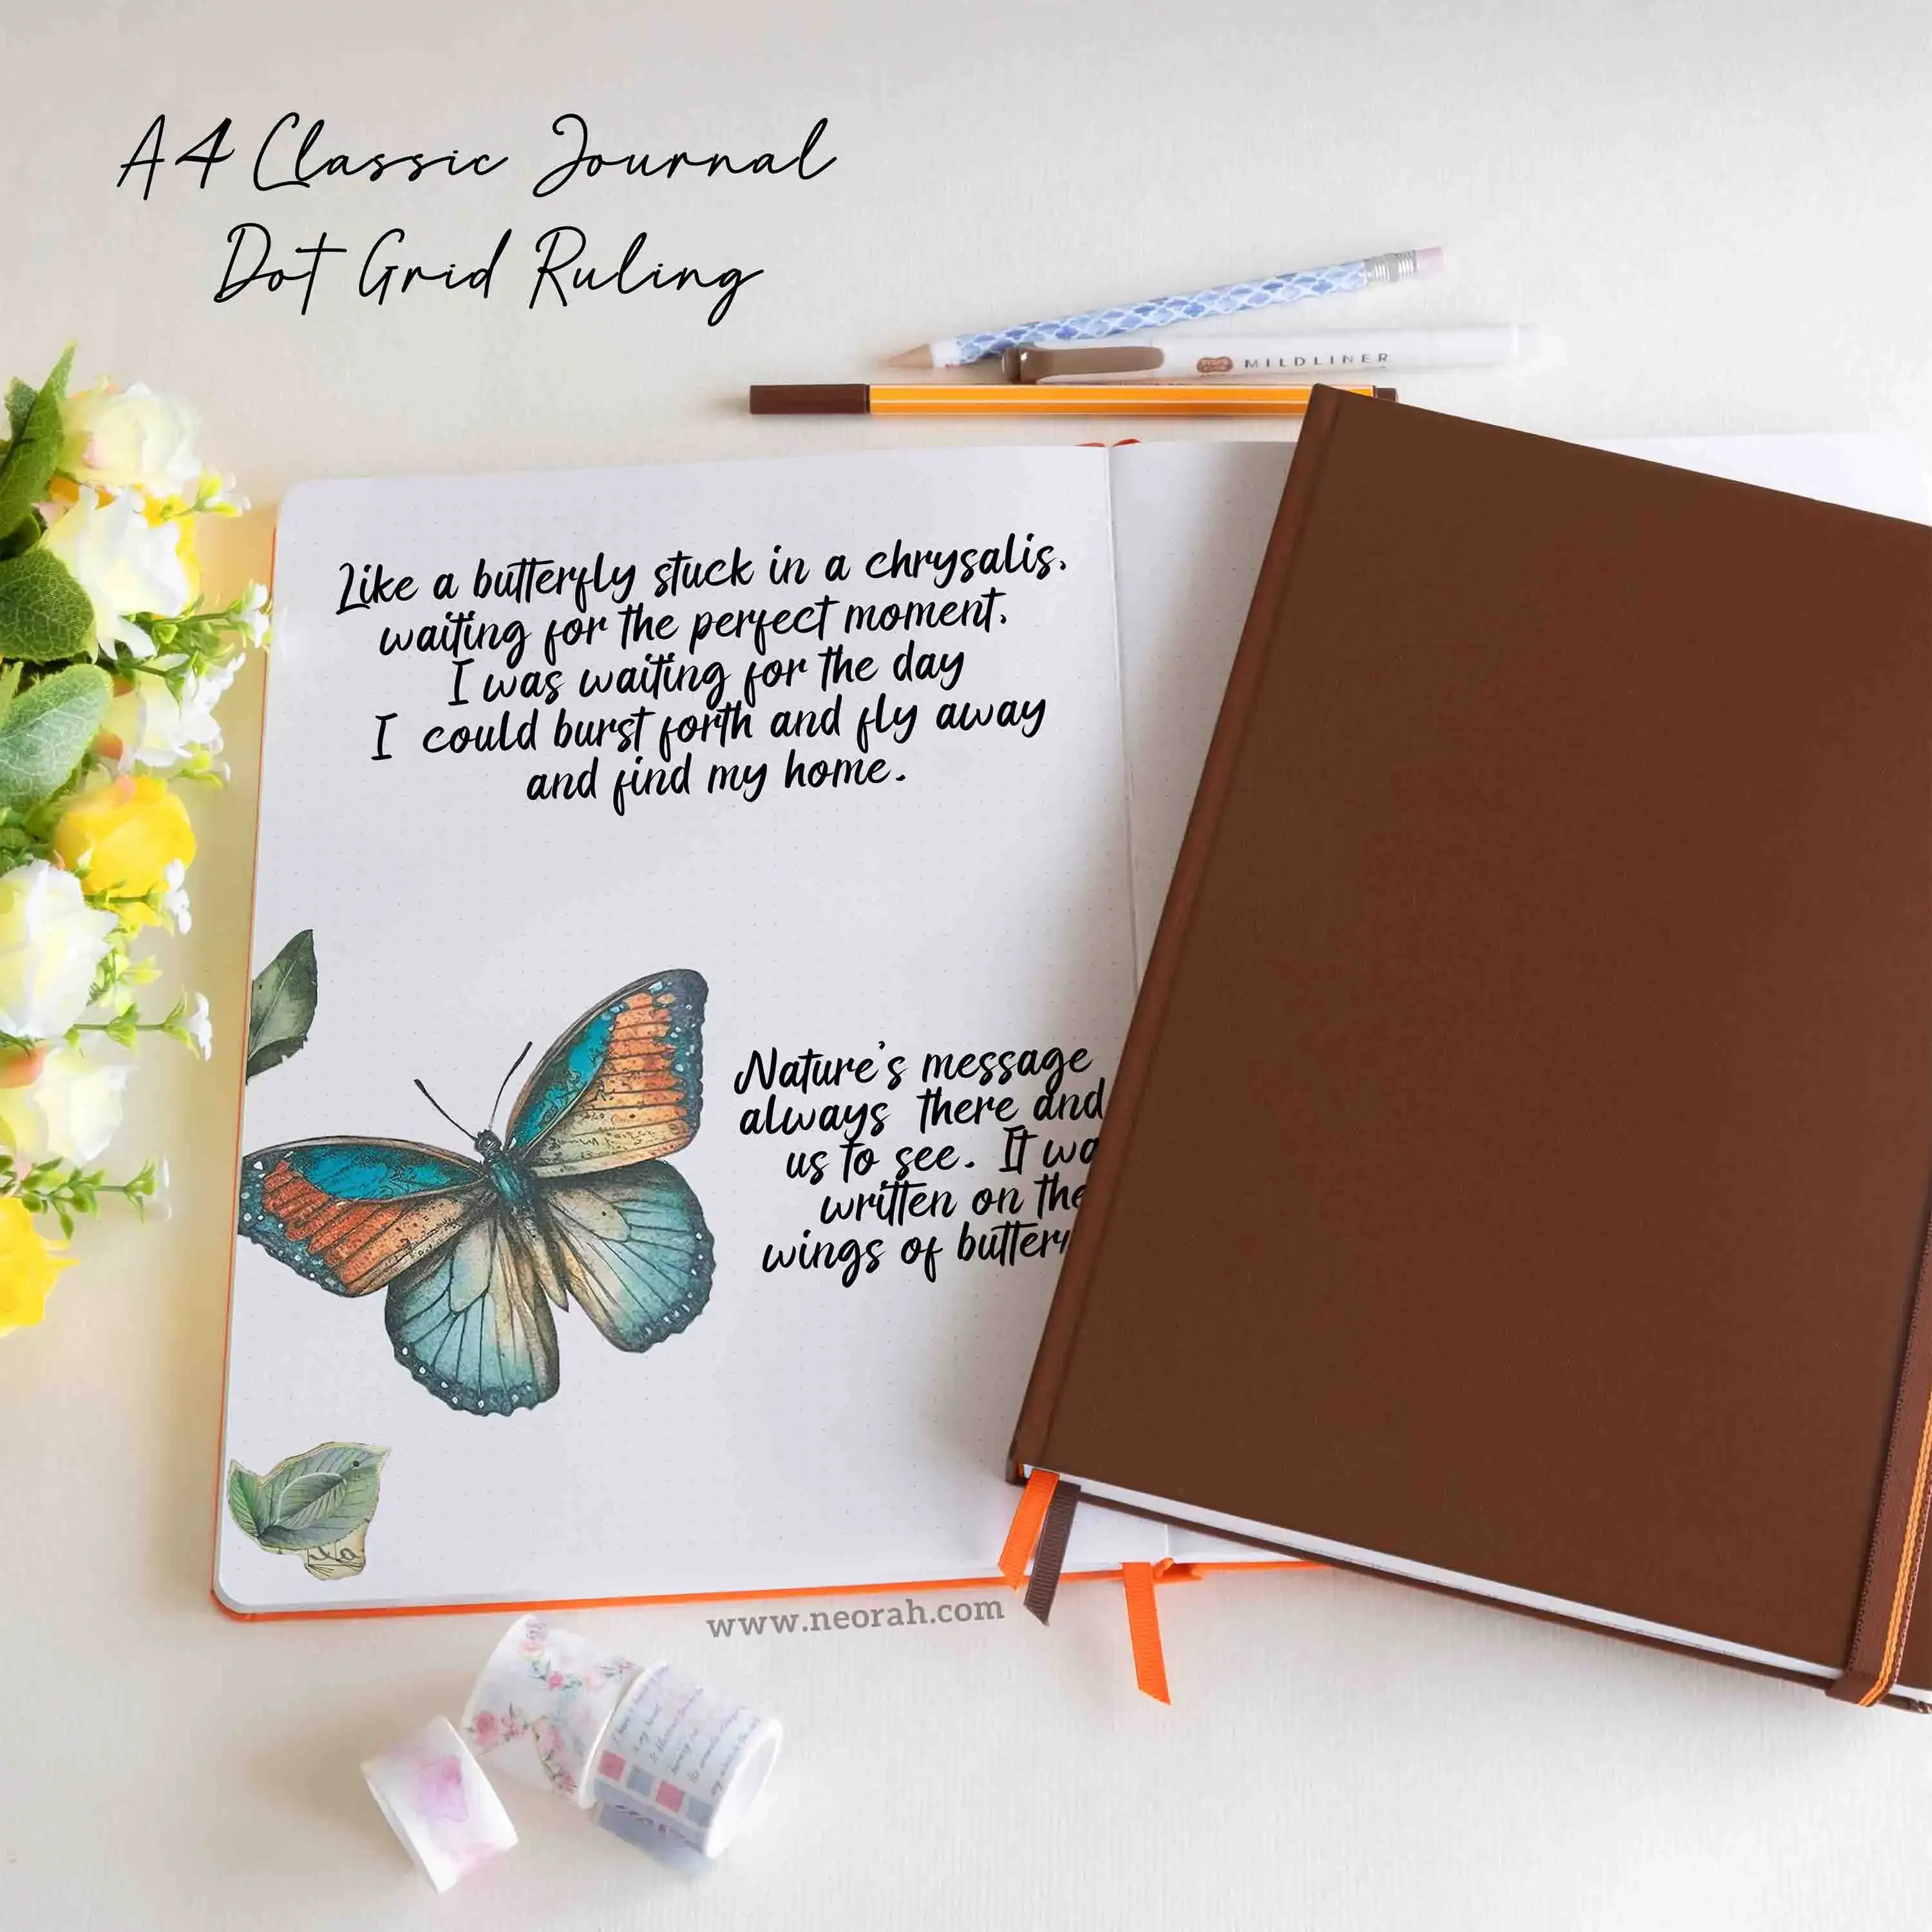 A4 Classic Journal
Dot Grid Ruling
MILDLINER
Like a butterfly stuck in a chrysalis,
waiting for the perfect moment,
I was waiting for the day
I could burst forth and fly away
and find my home.
Nature's message
always there and
us to see. It wa
written on the
wings of butterf
www.neorah.com